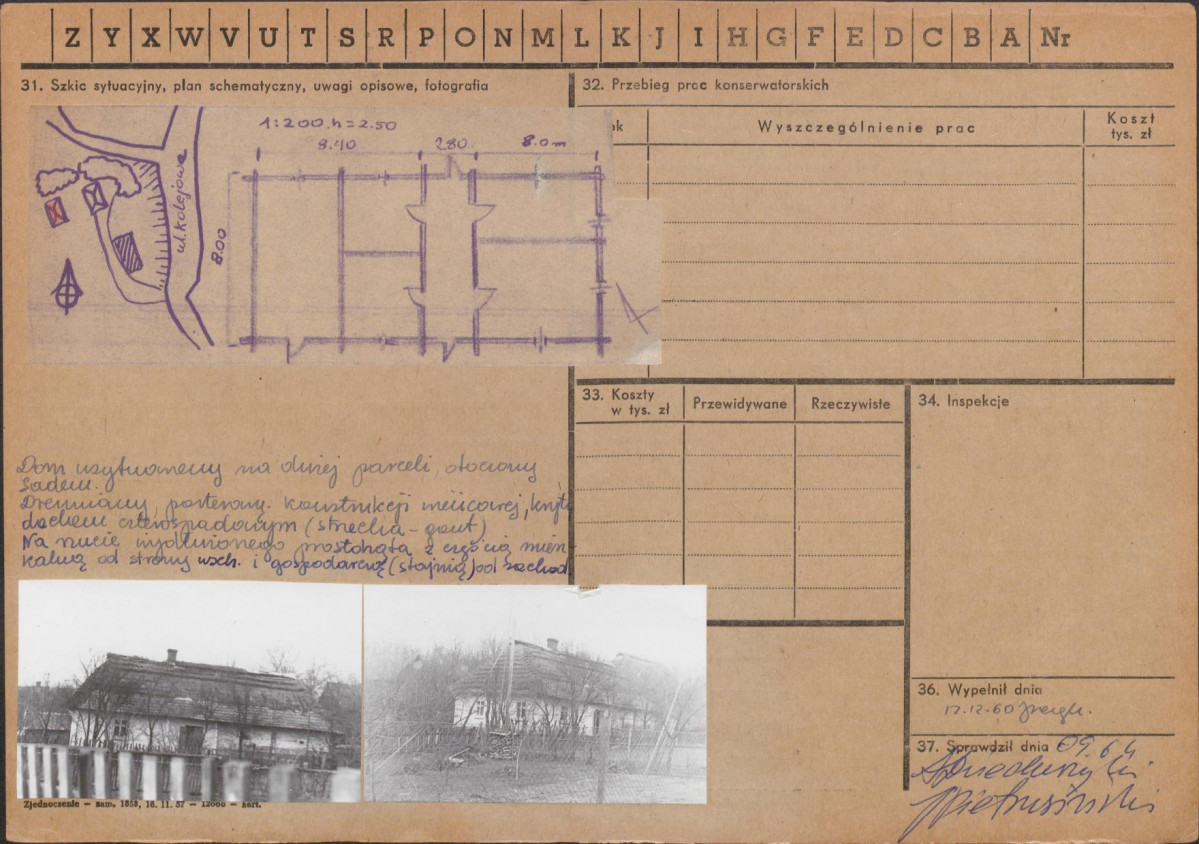 Z Y X W V U T S R P O N M L K J I H G F E D C B A Nr
31. Szkic sytuacyjny, plan schematyczny, uwagi opisowe, fotografia
1:200, h=2.50
8.40 2.80 8.0 m
8.00
ul. kolejowa
Dom usytuowany na dużej parceli, otoczony
sadem.
Drewniany, parterowy. konstrukcji wieńcowej, kryty
dachem czterospadowym (strzecha - gont)
Na rzucie wydłużonego prostokąta z częścią miesz
kalną od strony wsch. i gospodarczą (stajnią) od zachod
Zjednoczenie — zam. 1858, 16. 11. 57 — 12000 — kart.
32. Przebieg prac konserwatorskich
Wyszczególnienie prac
Koszt
tys. zł
33. Koszty
w tys. zł
Przewidywane
Rzeczywiste
34. Inspekcje
36. Wypełnił dnia
12.12.60
37. Sprawdził dnia 09.64